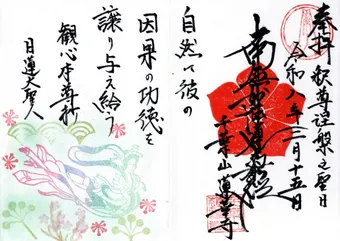 奉拝 釈尊涅槃之聖日
令和八年二月十五日
南無妙法蓮華経
本山蓮華寺
自然に彼の
因果の功徳を
譲り与え給う
観心本尊抄
日蓮大聖人